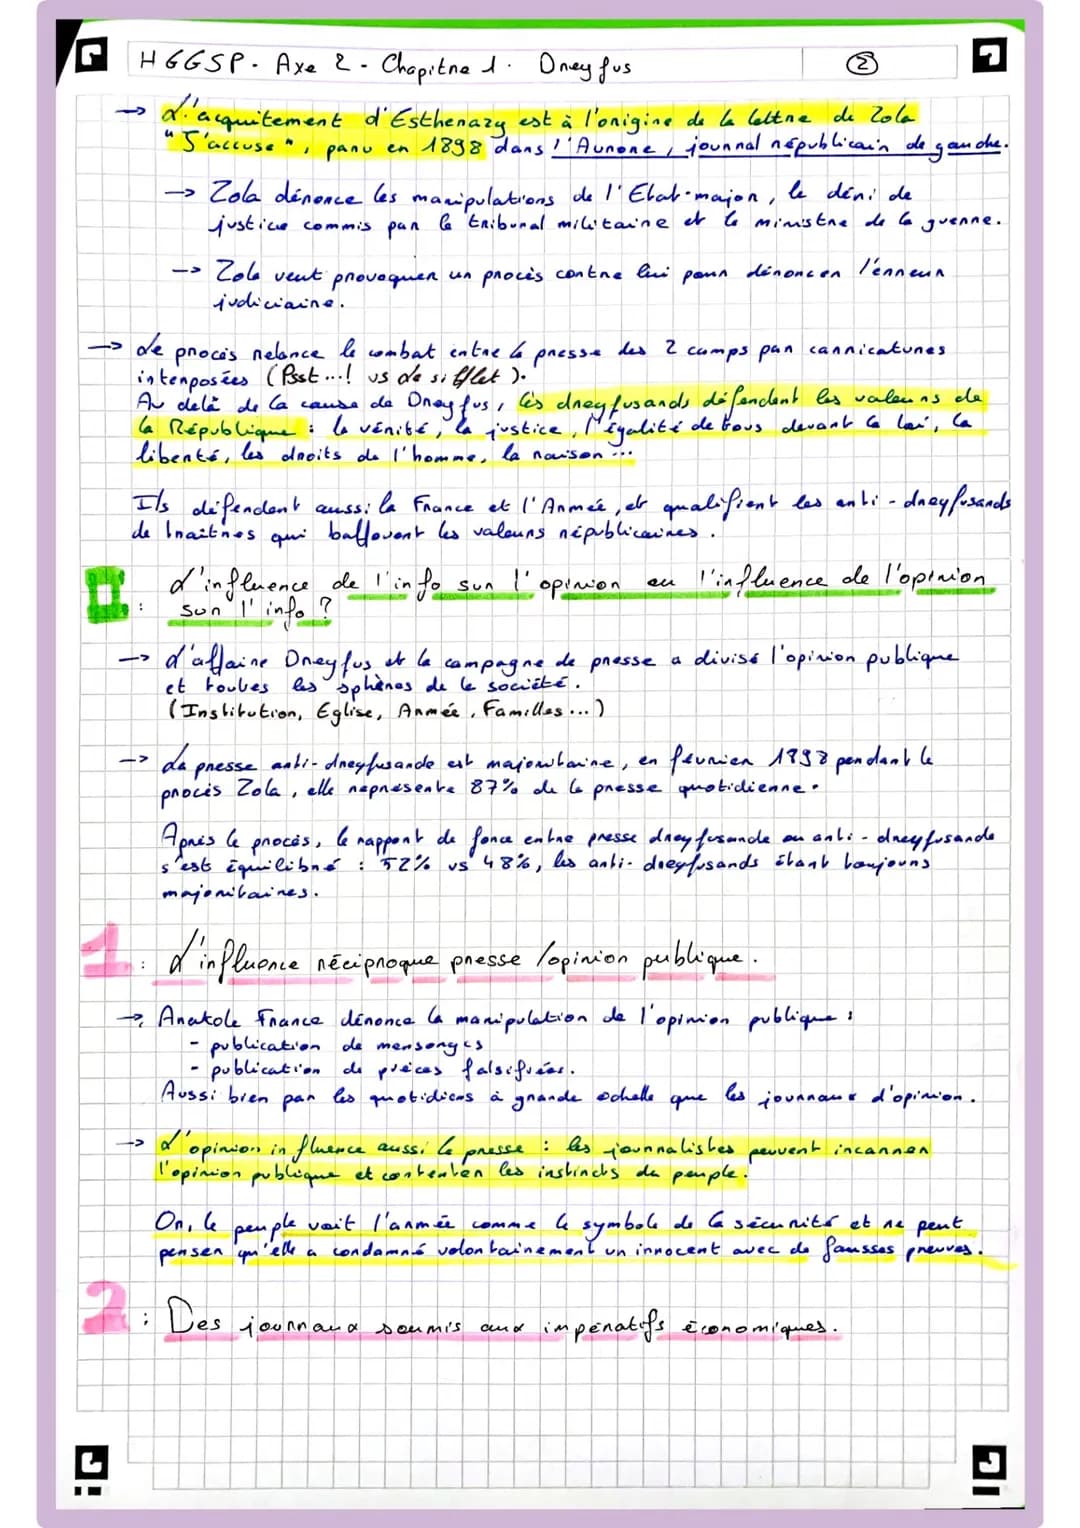 HGGSP - Axe 2 - Chapitre 1. Dreyfus ②
→ L'acquitement d'Esthenazy est à l'origine de la lettre de Zola
"J'accuse", paru en 1898 dans l'Aurore, journal républicain de gauche.
→ Zola dénonce les manipulations de l'Etat-major, le déni de
justice commis par le tribunal militaire et le ministre de la guerre.
→ Zola veut provoquer un procès contre lui pour dénoncer l'erreur
judiciaire.
→ Le procès relance le combat entre la presse des 2 camps par carricatures
interposées (Psst...! vs Le sifflet).
Au delà de la cause de Dreyfus, les dreyfusards défendent les valeurs de
la République : la vérité, la justice, l'égalité de tous devant la loi, la
liberté, les droits de l'homme, la raison...
Ils défendent aussi la France et l'Armée, et qualifient les anti-dreyfusards
de traitres qui baffouent les valeurs républicaines.
II : L'influence de l'info sur l'opinion ou l'influence de l'opinion
sur l'info ?
→ L'affaire Dreyfus et la campagne de presse a divisé l'opinion publique
et toutes les sphères de la société.
(Institution, Eglise, Armée, Familles...)
→ La presse anti-dreyfusarde est majoritaire, en février 1898 pendant le
procès Zola, elle représente 87% de la presse quotidienne.
Après le procès, le rapport de force entre presse dreyfusarde ou anti-dreyfusarde
s'est équilibré : 52% vs 48%, les anti-dreyfusards étant toujours
majoritaires.
1 : L'influence réciproque presse/opinion publique.
→ Anatole France dénonce la manipulation de l'opinion publique :
- publication de mensonges
- publication de pièces falsifiées.
Aussi bien par les quotidiens à grande echelle que les journaux d'opinion.
→ L'opinion influence aussi la presse : les journalistes peuvent incarner
l'opinion publique et contenter les instincts du peuple.
Or, le peuple voit l'armée comme le symbole de la sécurité et ne peut
penser qu'elle a condamné volontairement un innocent avec de fausses preuves.
2 : Des journaux soumis aux impératifs économiques.